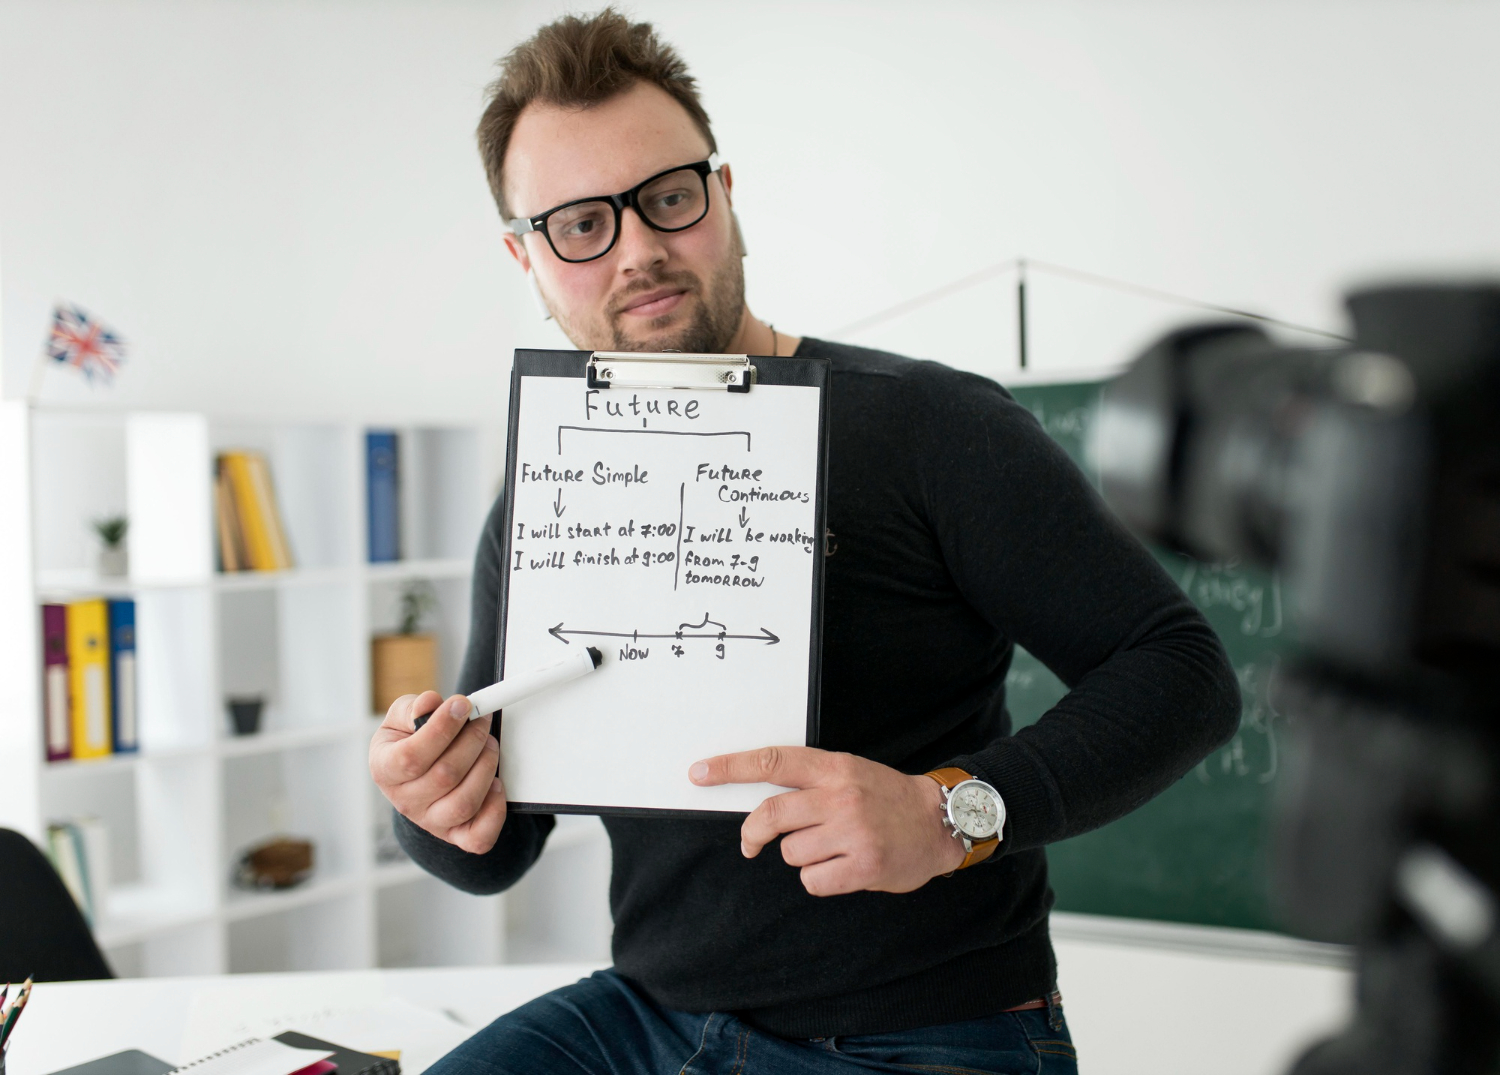 Future
Future Simple
I will start at 7:00
I will finish at 9:00
Future
Continuous
I will be working
from 7-9
tomorrow
Now 7 9
they
it